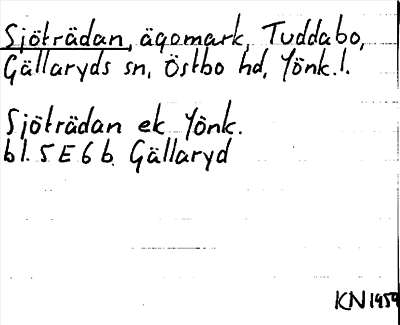 Sjöträdan, ägomark, Tuddabo,
Gällaryds sn, Östbo hd, Jönk. l.
Sjöträdan ek Jönk.
bl. 5 E 6 b Gällaryd
KN 1959